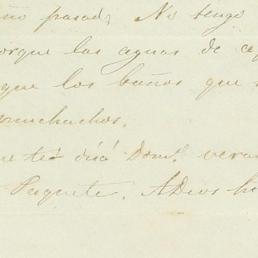 ño pasad, No tengo
orque las aguas de
que los baños que
muchachos.
ue te dirá Dom.l vera
Puquete. A Dios hi